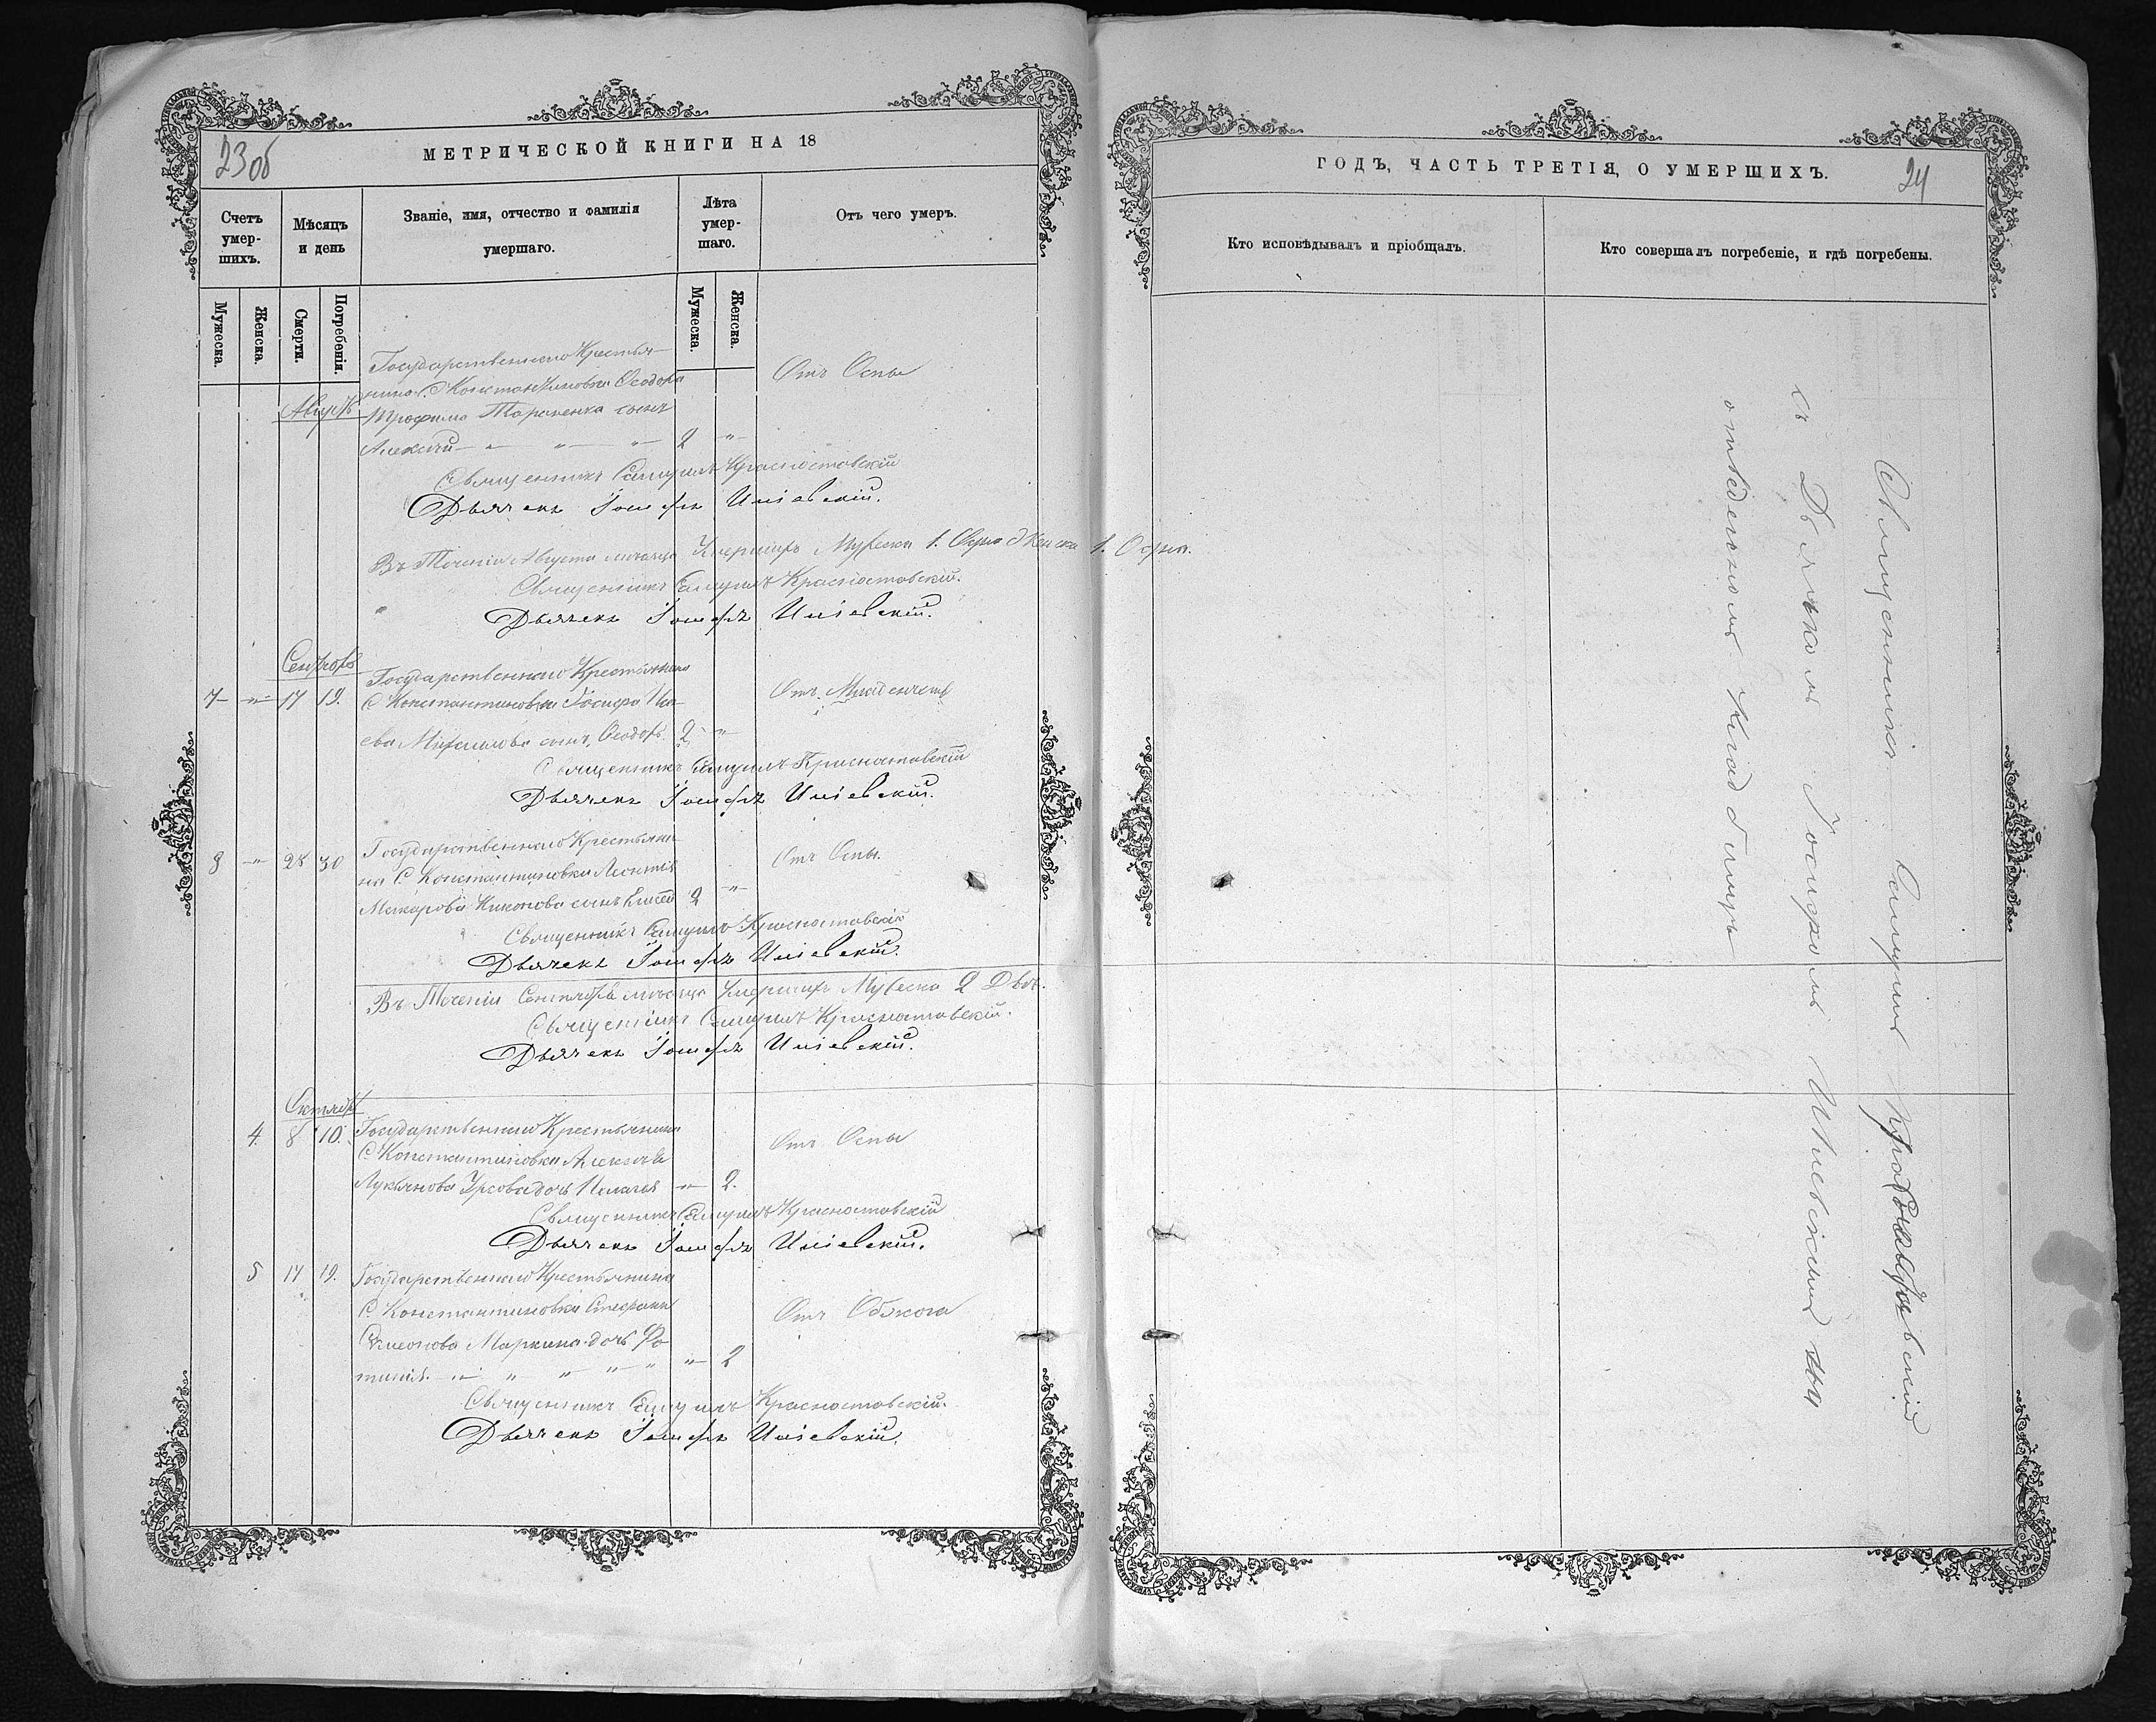 23об
МЕТРИЧЕСКОЙ КНИГИ НА 18
Счетъ умер-шихъ.
Мѣсяцъ и день
Званіе, имя, отчество и фамилія умершаго.
Лѣта умер-шаго.
Отъ чего умеръ.
Мужеска.
Женска.
Смерти.
Погребенія.
Мужеска.
Женска.
Государственнаго Крестья-
нина С. Константиновки Ѳеодора
Августъ
Трофимова сынъ
Алексѣй 2
Отъ Оспы
Священникъ Самуилъ Красноставскій
Дьячекъ Іосифъ Иліевскій.
Въ Теченіи Августа месяца Умершихъ Мужеска 1. Женска 1.
Священникъ Самуилъ Красноставскій.
Дьячекъ Іосифъ Иліевскій.
Сентябрь
7 17 19.
Государственнаго Крестьянина
С Константиновки Іосифа
сынъ Ѳеодоръ. 2
Отъ
Священникъ Самуилъ Красноставскій
Дьячекъ Іосифъ Иліевскій.
8 28 30
Государственнаго Крестьяни-
на С. Константиновки Леонтія
Макарова Никонова сынъ 2
Отъ Оспы.
Священникъ Самуилъ Красноставскій
Дьячекъ Іосифъ Иліевскій.
Въ Теченіи Сентября месяца Умершихъ Мужеска 2 Двѣ.
Священникъ Самуилъ Красноставскій.
Дьячекъ Іосифъ Иліевскій.
Октябрь
4. 8 10.
Государственнаго Крестьянина
С Константиновки Алексѣя
Лукьянова дочь 2.
Отъ Оспы
Священникъ Самуилъ Красноставскій
Дьячекъ Іосифъ Иліевскій.
5 17 19.
Государственнаго Крестьянина
С Константиновки Стефана
Симеонова Маркина дочь Фо-
тинія 2
Отъ
Священникъ Самуилъ Красноставскій.
Дьячекъ Іосифъ Иліевскій.
ГОДЪ, ЧАСТЬ ТРЕТІЯ, О УМЕРШИХЪ.
24
Кто исповѣдывалъ и пріобщалъ.
Кто совершалъ погребеніе, и гдѣ погребены.
Священникъ Самуилъ Красноставскій
съ Дьячкомъ Іосифомъ Иліевскимъ на
отведенномъ Кладбищѣ